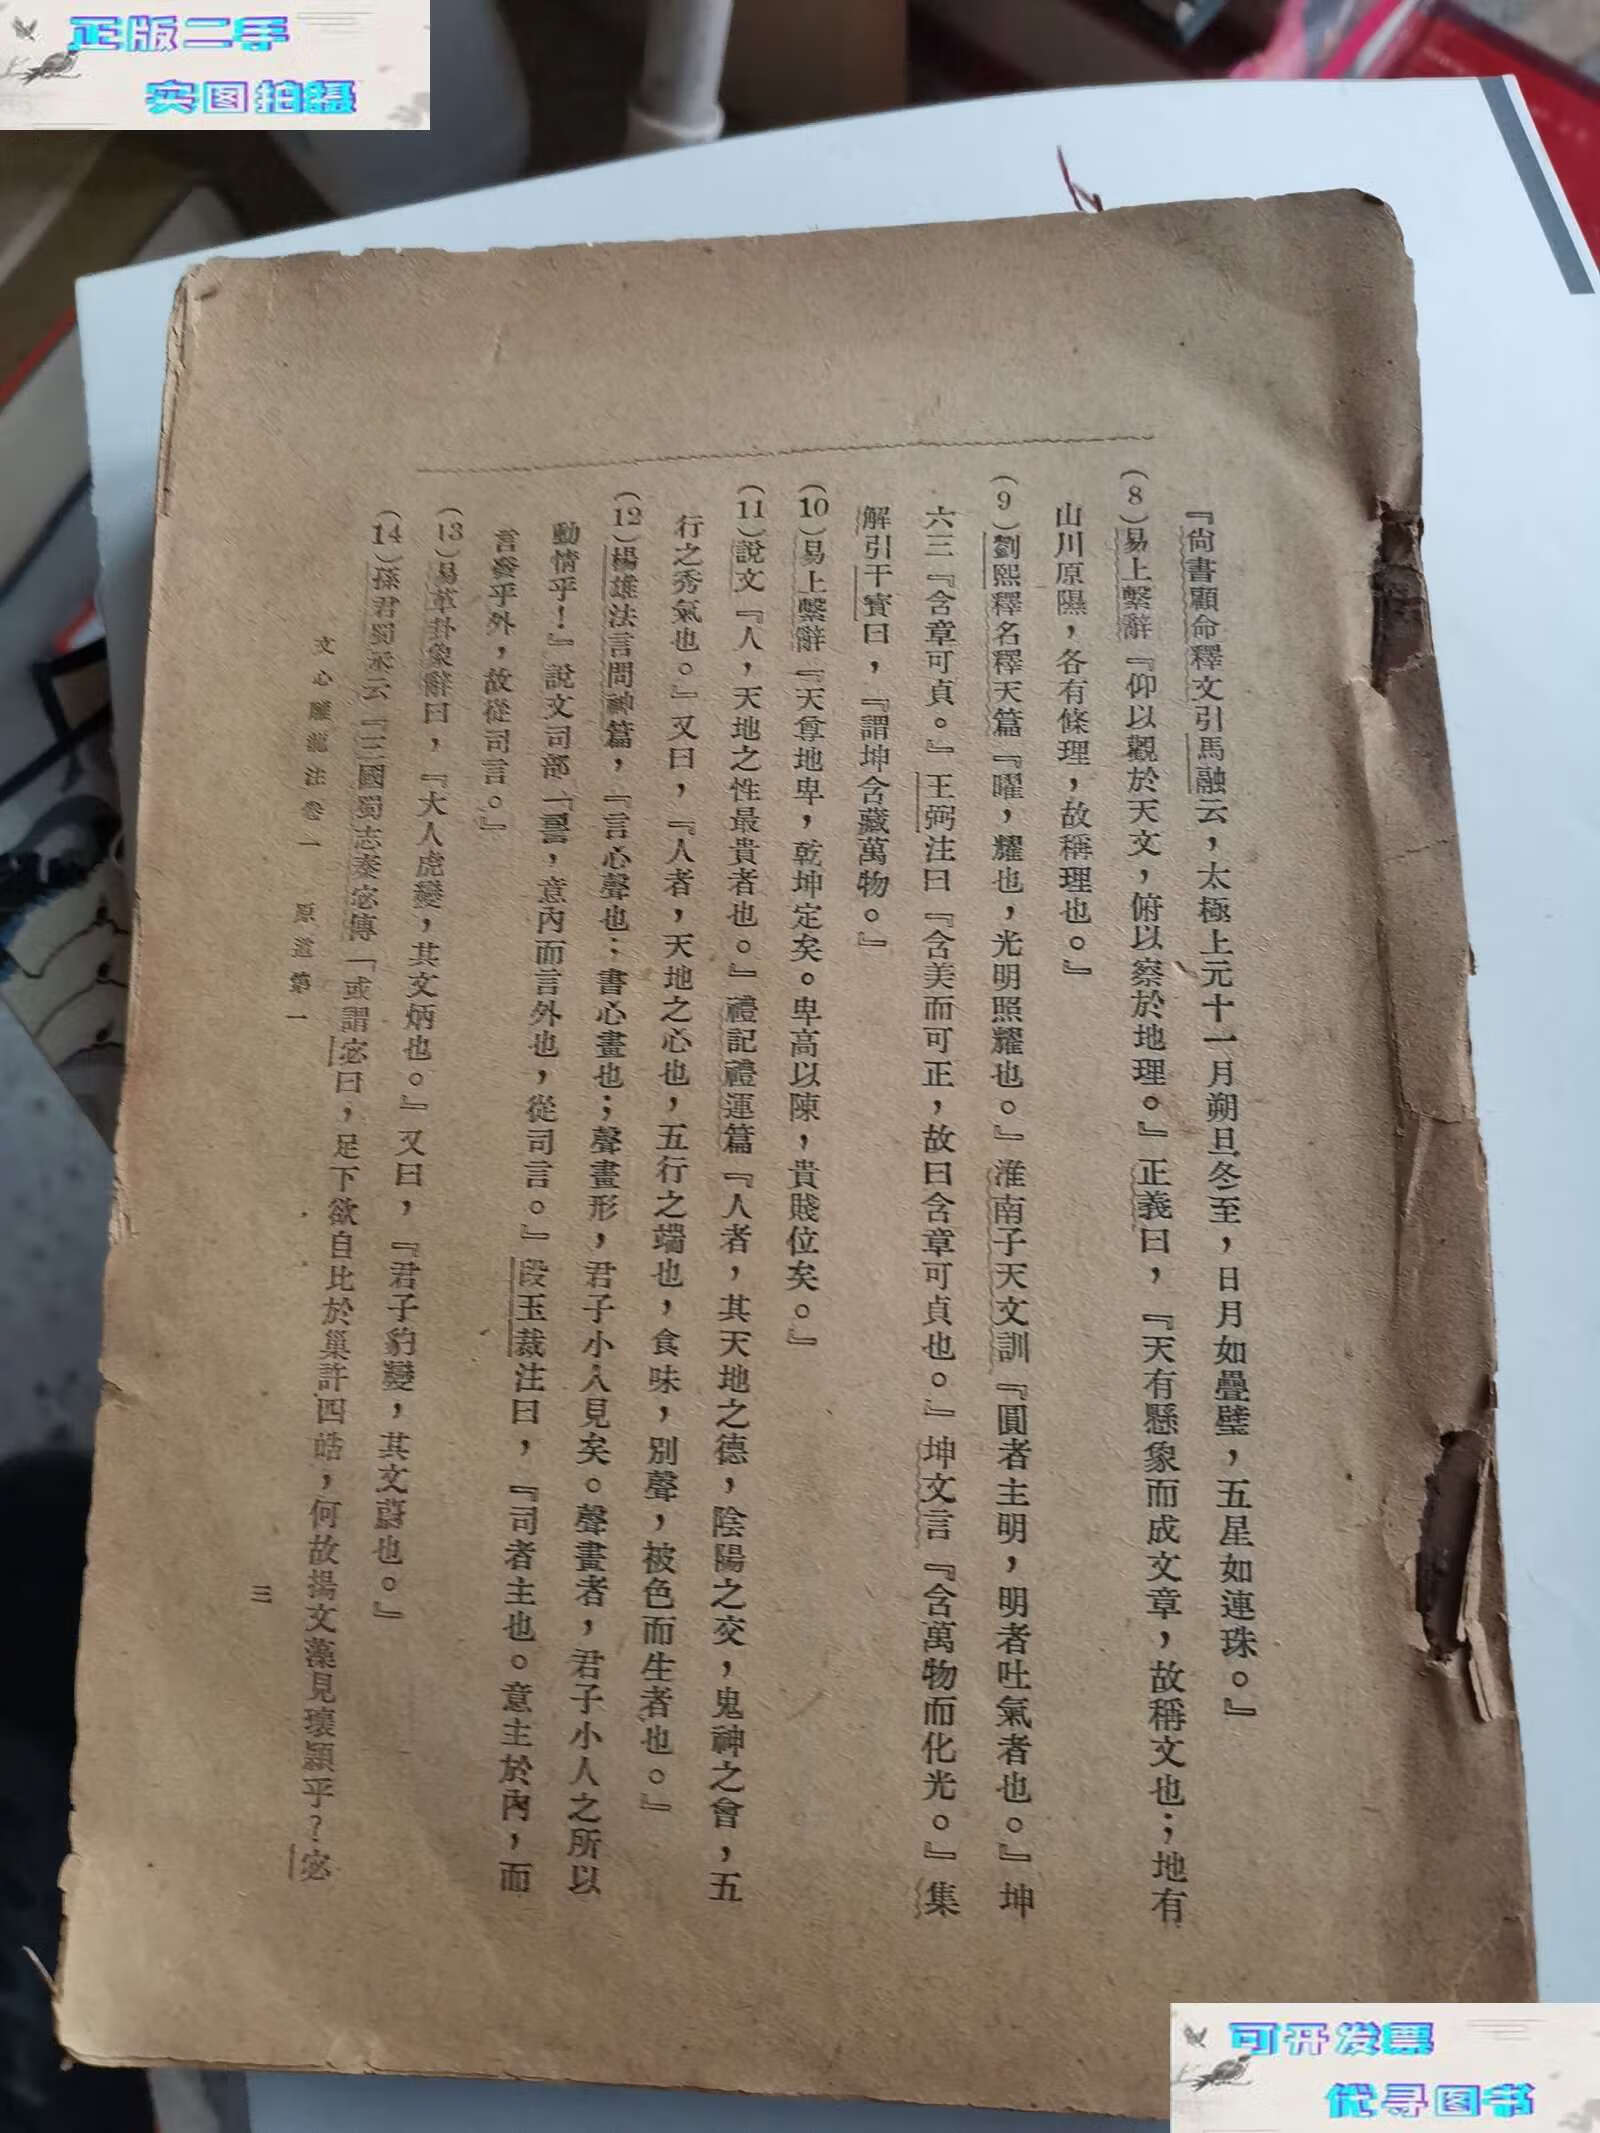 正版二手
实图拍摄
『尙書顧命釋文引馬融云，太極上元十一月朔旦冬至，日月如疊璧，五星如連珠。』
（8）易上繫辭『仰以觀於天文，俯以察於地理。』正義曰，『天有懸象而成文章，故稱文也；地有
山川原隰，各有條理，故稱理也。』
（9）劉熙釋名釋天篇『曜，耀也，光明照耀也。』淮南子天文訓『圓者主明，明者吐氣者也。』坤
六三『含章可貞。』王弼注曰『含美而可正，故曰含章可貞也。』坤文言『含萬物而化光。』集
解引干寶曰，『謂坤含藏萬物。』
（10）易上繫辭『天尊地卑，乾坤定矣。卑高以陳，貴賤位矣。』
（11）說文『人，天地之性最貴者也。』禮記禮運篇『人者，其天地之德，陰陽之交，鬼神之會，五
行之秀氣也。』又曰，『人者，天地之心也，五行之端也，食味，別聲，被色而生者也。』
（12）楊雄法言問神篇，『言心聲也；書心畫也；聲畫形，君子小人見矣。聲畫者，君子小人之所以
動情乎！』說文司部『，意內而言外也，從司言。』段玉裁注曰，『司者主也。意主於內，而
言發乎外，故從司言。』
（13）易革卦象辭曰，『大人虎變，其文炳也。』又曰，『君子豹變，其文蔚也。』
（14）孫君蜀丞云『三國蜀志秦宓傳「或謂宓曰，足下欲自比於巢許四皓，何故揚文藻見瓌穎乎？宓
文心雕龍注卷一 原道第一
三
可开发票
优寻图书